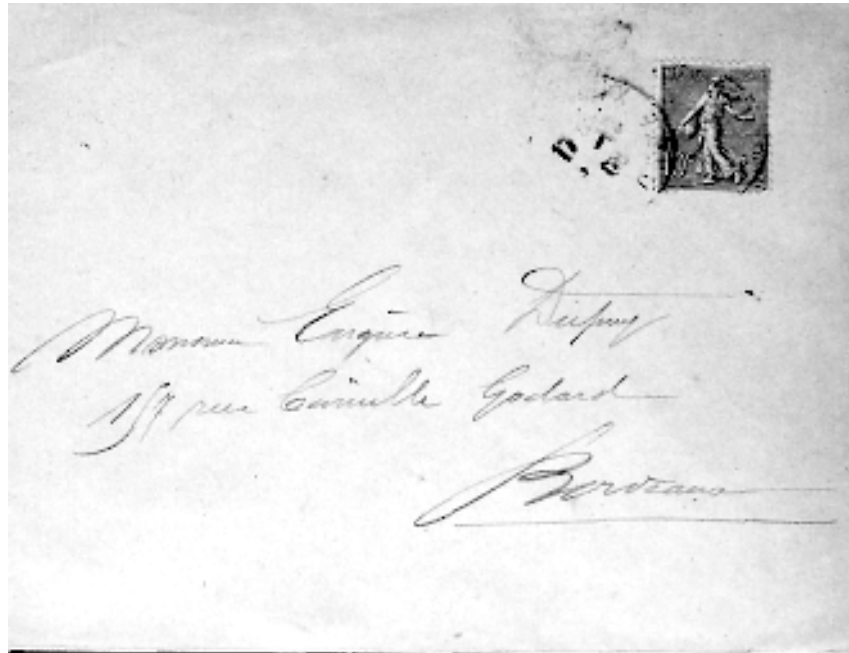 Monsieur Eugène Dupuy
157 rue Camille Godard
Bordeaux